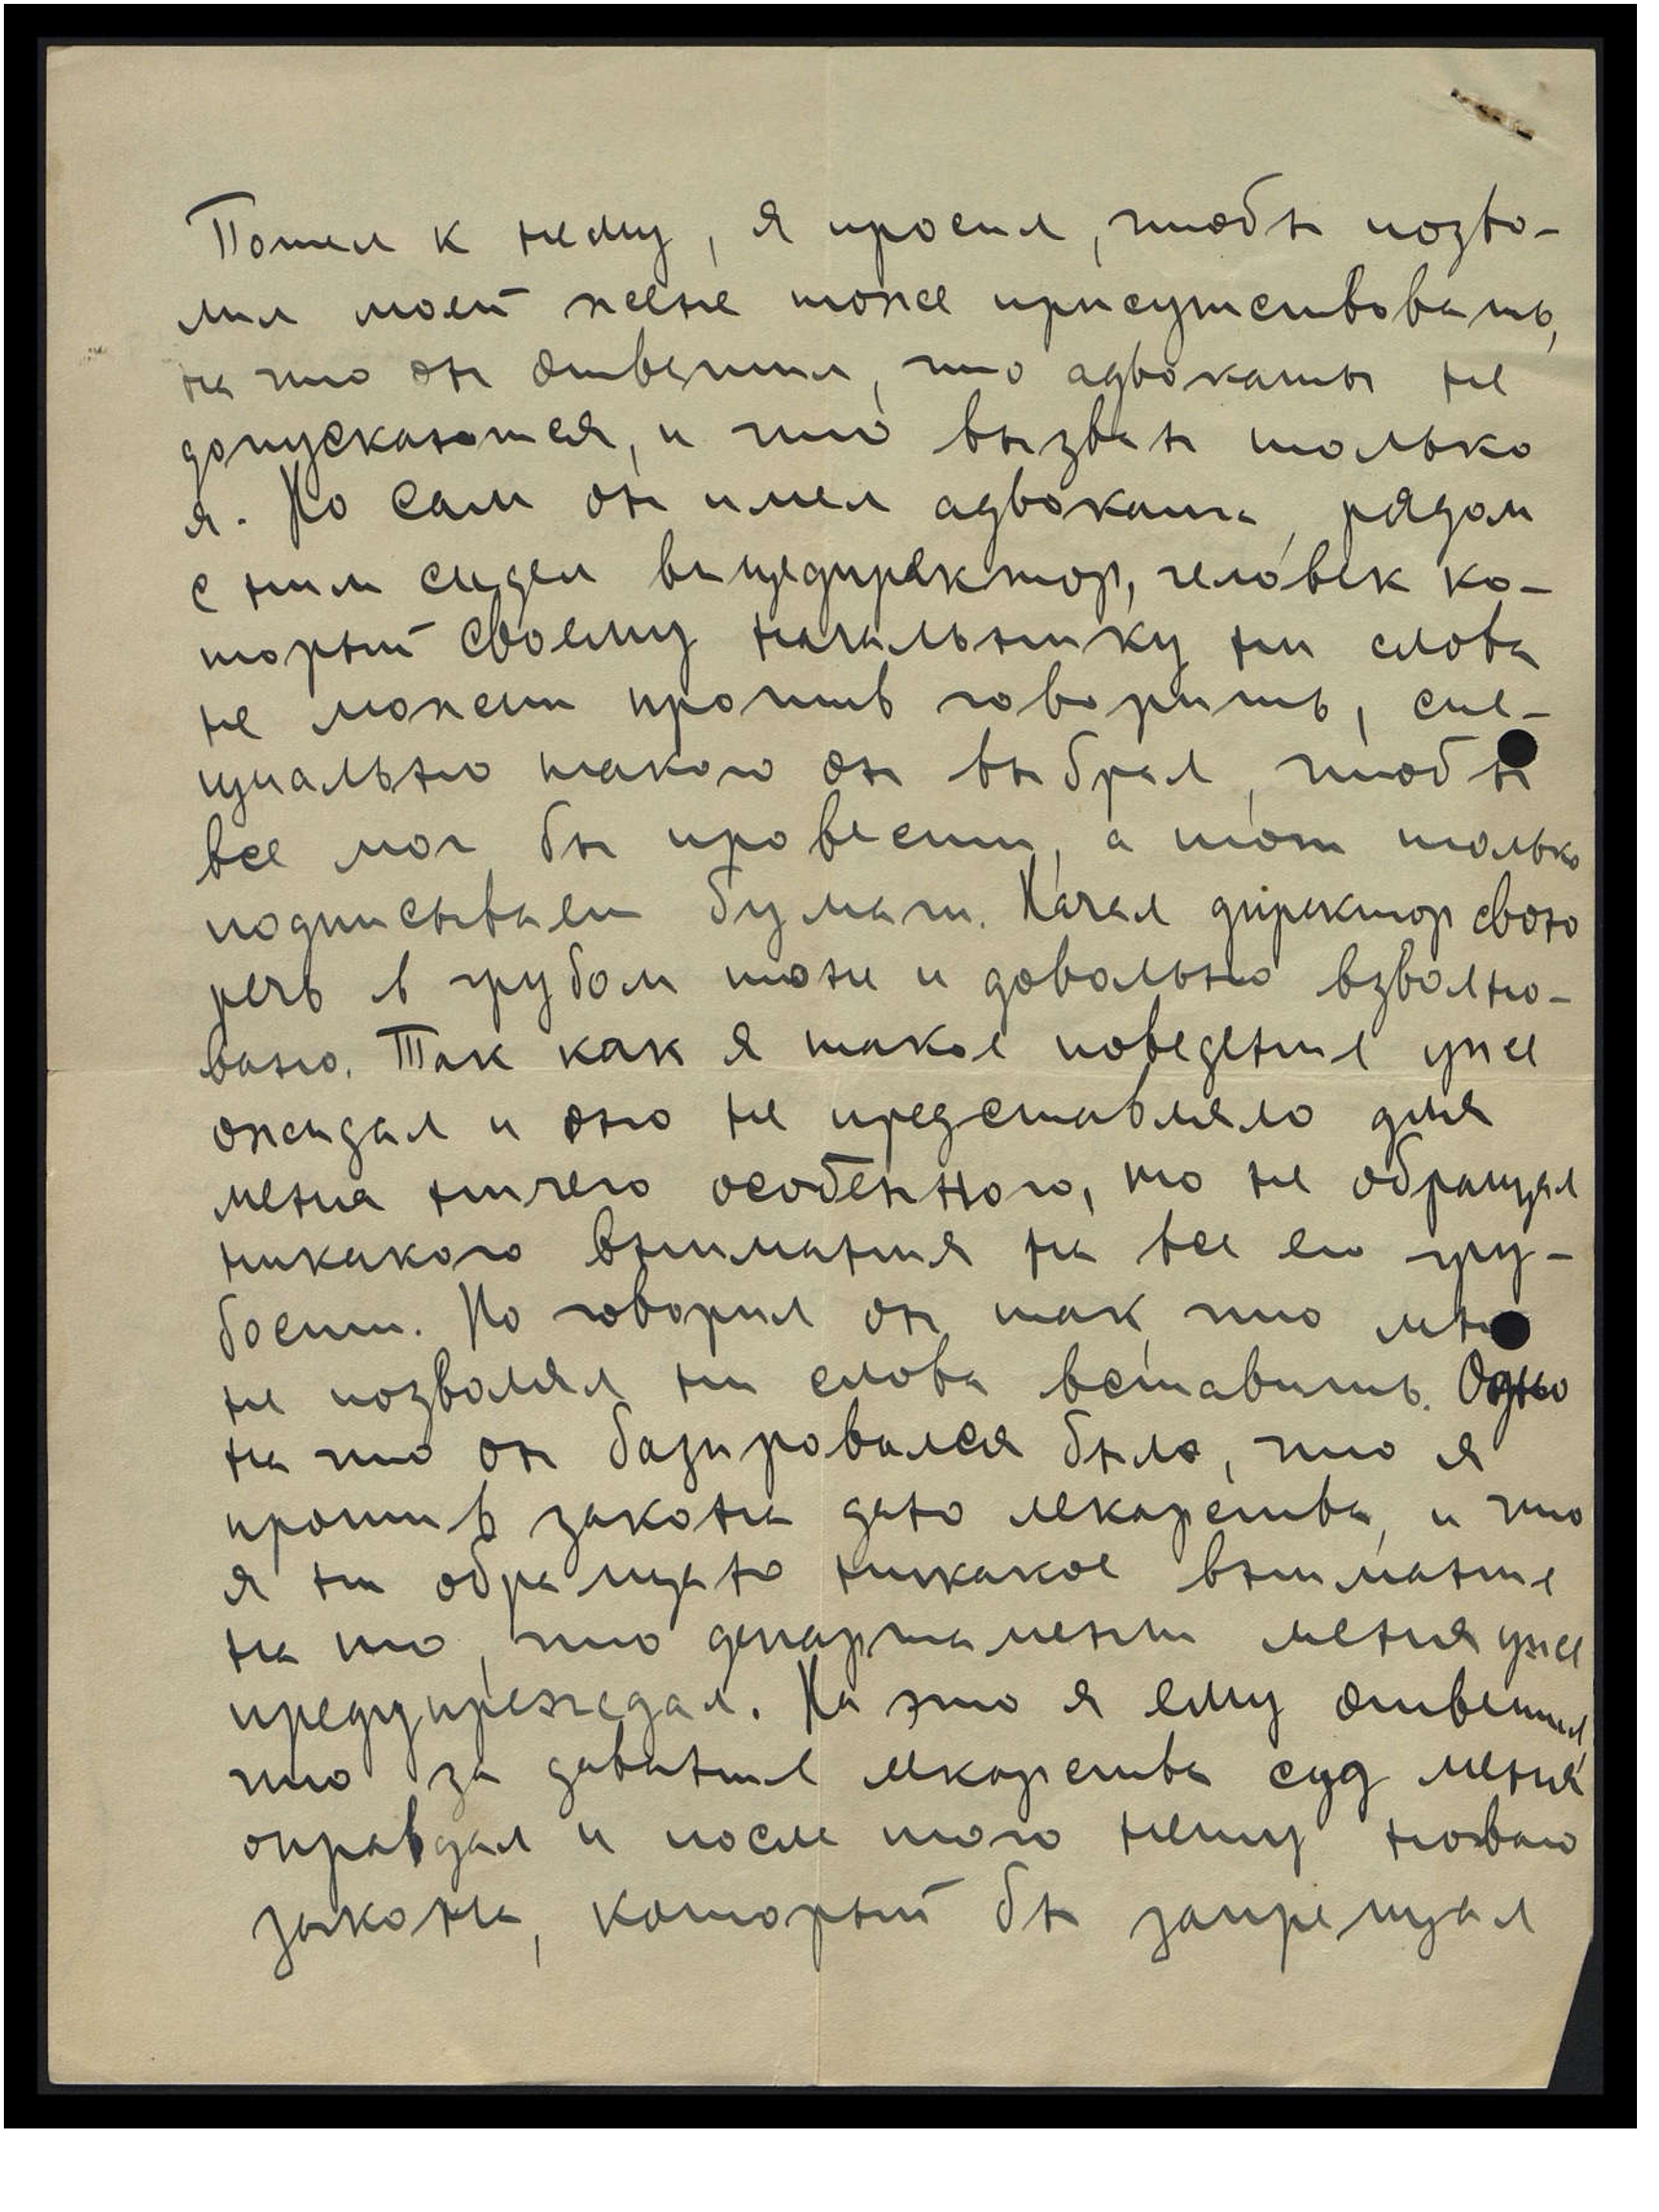 Пошел к нему, я просил, чтобы позво-
лил моей жене тоже присутствовать,
на что он ответил, что адвокаты не
допускаются, и что вызван только
я. Но сам он имел адвоката, рядом
с ним сидел вицедиректор, человек ко-
торый своему начальнику ни слова
не может против говорить, спе-
циально такого он выбрал, чтобы
все мог бы провести, а тот только
подписывает бумаги. Начал директор свою
речь в грубом тоне и довольно взволно-
вано. Так как я такое поведение уже
ожидал и оно не представляло для
меня ничего особенного, то не обращал
никакого внимания на все его гру-
бости. Но говорил он так, что мне
не позволял ни слова вставить. Одно
на что он базировался было, что я
против закона даю лекарства, и что
я ни обращаю никакое внимание
на то, что департамент меня уже
предупреждал. На это я ему ответил,
что за давание лекарства суд меня
оправдал и после того нету нового
закона, который бы запрещал